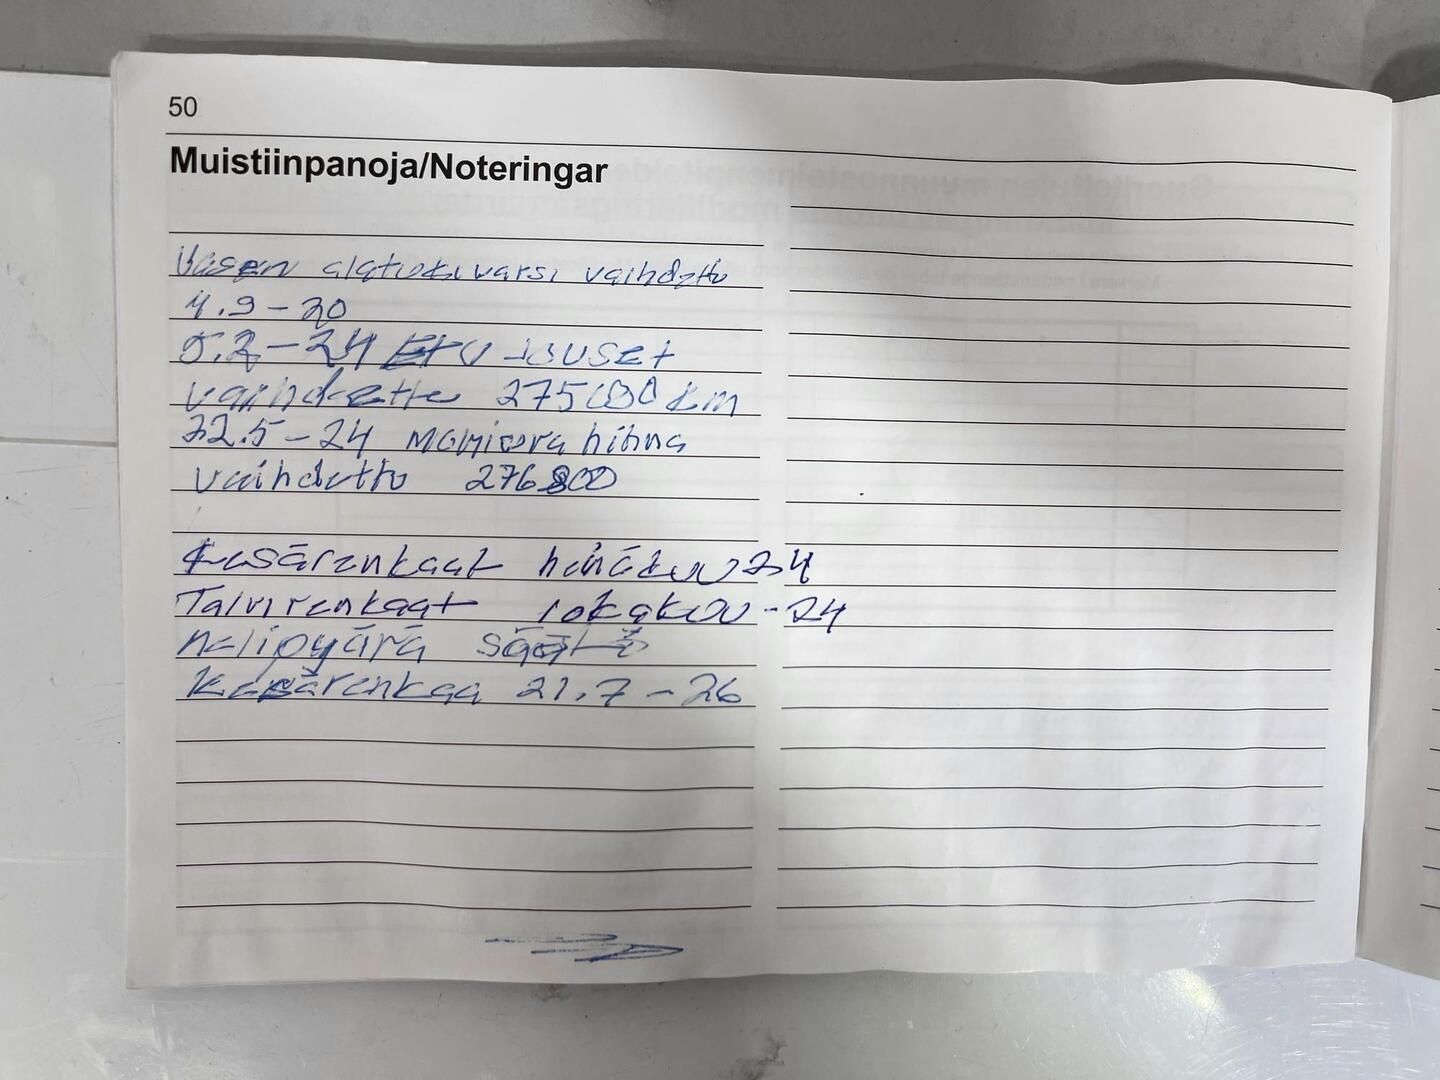 50
Muistiinpanoja/Noteringar
Vasen alatukivarsi vaihdettu
4.9-20
5.2-24 Etu jouset
vaihdettu 275000 km
22.5-24 Moniura hihna
vaihdettu 276800
Kesärenkaat heinäkuu 24
Talvirenkaat lokakuu-24
nelipyörä säätö
Kesärenkaa 21.7-26